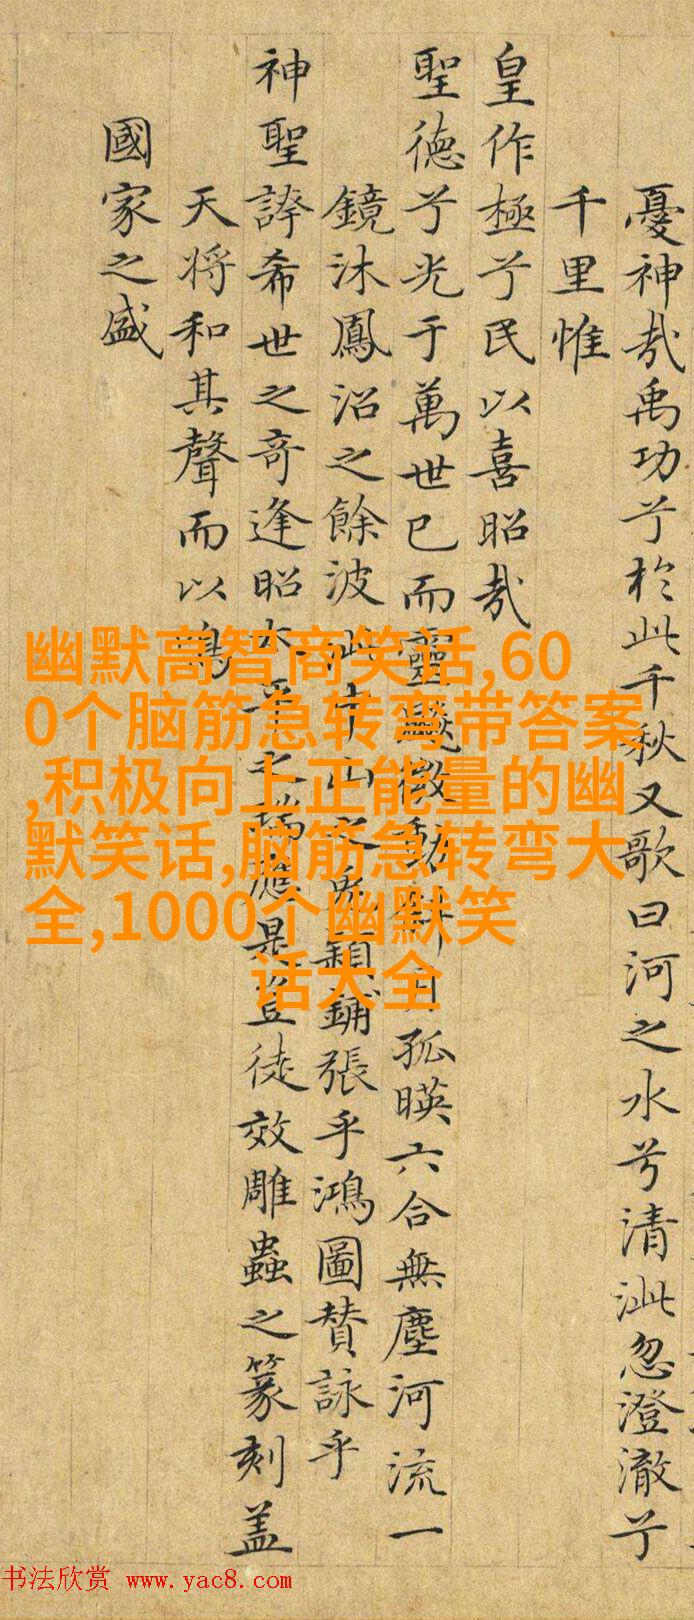 憂神哉禹功兮於此千秋又歌曰河之水兮清泚忽澄澈兮
千里惟
皇作極兮民以喜昭哉
聖德兮光于萬世已而靈飈微動斜月孤暎六合無塵河流一
鏡沐鳳沼之餘波泚中山之兎穎鋪張乎鴻圖贊詠乎
神聖誇希世之奇逢昭太平之瑞應是豈徒效雕蟲之篆刻盖
天将和其聲而以鳴
國家之盛
幽默高智商笑话,60
0个脑筋急转弯带答案
,积极向上正能量的幽
默笑话,脑筋急转弯大
全,1000个幽默笑
话大全
书法欣赏 www.yac8.com